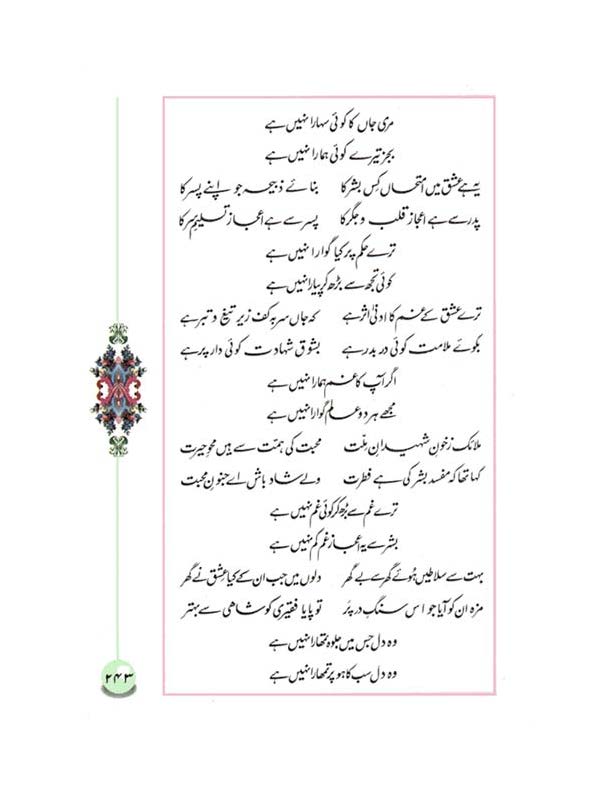 مری جاں کا کوئی سہارا نہیں ہے
بجز تیرے کوئی ہمارا نہیں ہے
یہ ہے عشق میں امتحاں کس بشر کا بنائے ذبیحہ جو اپنے پسر کا
پدر سے ہے اعجاز قلب و جگر کا پسر سے ہے اعجاز تسلیمِ سر کا
ترے حکم پر کیا گوارا نہیں ہے
کوئی تجھ سے بڑھ کر پیارا نہیں ہے
ترے عشق کے غم کا ادنیٰ اثر ہے کہ جاں سر بہ کف زیر تیغ و تبر ہے
بکوئے ملامت کوئی در بدر ہے بشوق شہادت کوئی دار پر ہے
اگر آپ کا غم ہمارا نہیں ہے
مجھے ہر دو عالم گوارا نہیں ہے
ملائک زخونِ شہیدانِ ملّت محبت کی ہمّت سے ہیں محوِ حیرت
کہا تھا کہ مفسد بشر کی ہے فطرت ولے شاد باش اے جنونِ محبت
ترے غم سے بڑھ کر کوئی غم نہیں ہے
بشر سے یہ اعجازِ غم کم نہیں ہے
بہت سے سلاطیں ہوئے گھر سے بے گھر دلوں میں جب ان کے کیا عشق نے گھر
مزہ ان کو آیا جو اس سنگِ در پر تو پایا فقیری کو شاھی سے بہتر
وہ دل جس میں جلوہ تمھارا نہیں ہے
وہ دل سب کا ہو پر تمھارا نہیں ہے
۲۴۳